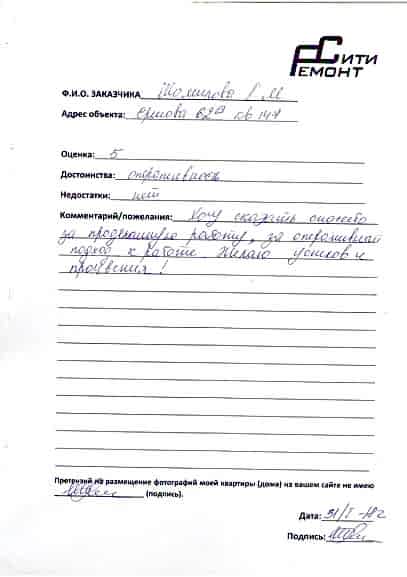 СИТИ
РЕМОНТ
Ф.И.О. ЗАКАЗЧИКА Томилова Г М
Адрес объекта: Ершова 62В кв 147
Оценка: 5
Достоинства: оперативность
Недостатки: нет
Комментарий/пожелания: Хочу сказать спасибо
за проделанную работу, за оперативный
подход к работе. Желаю успехов и
процветания!
Претензий на размещение фотографий моей квартиры (дома) на вашем сайте не имею
(подпись).
Дата: 31/I -18г
Подпись: